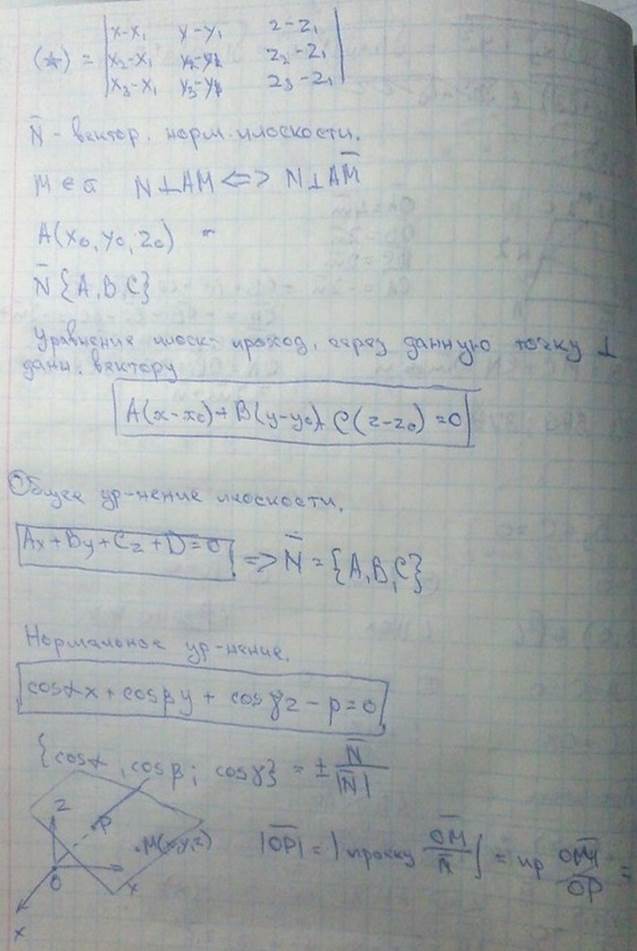 (*) = | x-x₁ y-y₁ z-z₁ |
| x₂-x₁ y₂-y₁ z₂-z₁ |
| x₃-x₁ y₃-y₁ z₃-z₁ |
N̅ - вектор. норм. плоскости.
M ∈ σ N⊥AM <=> N⊥AM̅
A(x₀, y₀, z₀)
N̅ {A, B, C}
Уравнение плоск. проход. через данную точку ⊥
данн. вектору
A(x-x₀)+B(y-y₀)+C(z-z₀)=0
Общее ур-нение плоскости.
Ax+By+Cz+D=0 => N̅ = {A, B, C}
Нормальное ур-нение.
cosαx + cosβy + cosγz - p = 0
{cosα, cosβ; cosγ} = ± N̅/|N̅|
z
P
M(x,y,z)
O
x
x
|O̅P̅| = | OM̅/N̅ | = пр OM̅/OP =